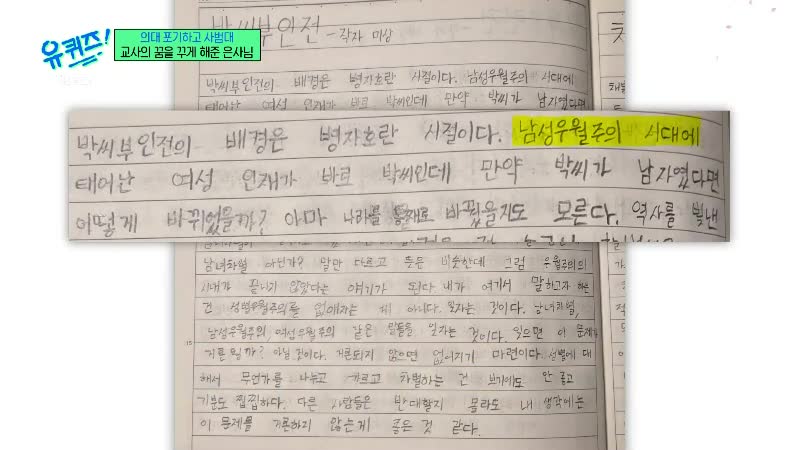 유퀴즈!
의대 포기하고 사범대
교사의 꿈을 꾸게 해준 은사님
박씨부인전 - 작자 미상
박씨부인전의 배경은 병자호란 시절이다. 남성우월주의 시대에
태어난 여성 인재가 바로 박씨인데 만약 박씨가 남자였다면
박씨부인전의 배경은 병자호란 시절이다. 남성우월주의 시대에
태어난 여성 인재가 바로 박씨인데 만약 박씨가 남자였다면
어떻게 바뀌었을까? 아마 나라를 통째로 바꿨을지도 모른다. 역사를 빛낸
남녀차별 아닌가? 말만 다르고 뜻은 비슷한데 그럼 우월주의의
시대가 끝나지 않았다는 얘기가 된다. 내가 여기서 말하고자 하는
건 성별우월주의를 없애자는 게 아니다. 잊자는 것이다. 남녀차별,
남성우월주의, 여성우월주의 같은 말들을 잊자는 것이다. 잊으면 이 문제가
15
거론될까? 아닐 것이다. 거론되지 않으면 없어지기 마련이다. 성별에 대
해서 무언가를 나누고 가르고 차별하는 건 보기에도 안 좋고
기분도 찝찝하다. 다른 사람들은 반대할지 몰라도 내 생각에는
이 문제를 거론하지 않는게 좋은 것 같다.